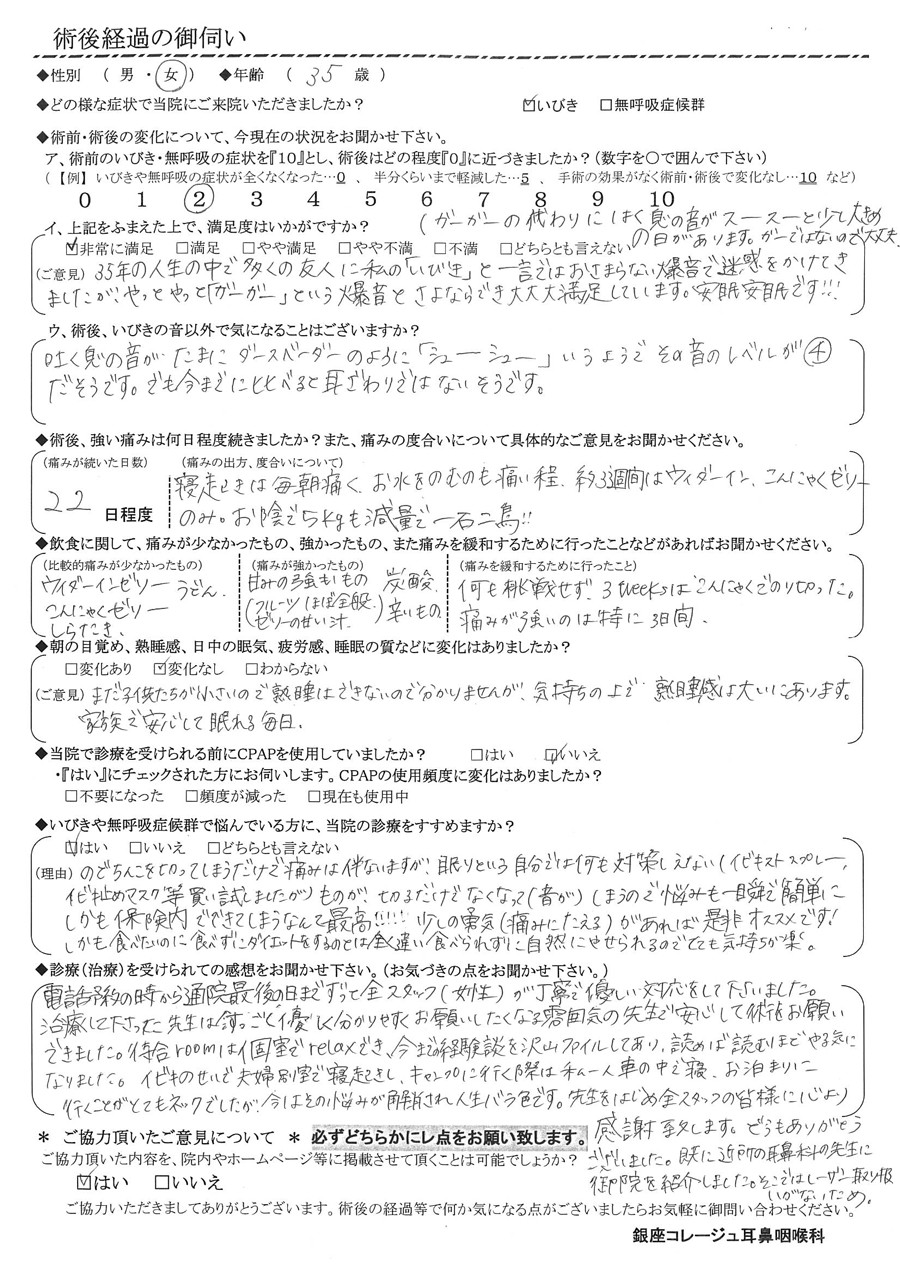 術後経過の御伺い
◆性別 ( 男 ・ 女 ) ◆年齢 ( 35 歳 )
◆どの様な症状で当院にご来院いただきましたか? ☑いびき □無呼吸症候群
◆術前・術後の変化について、今現在の状況をお聞かせ下さい。
ア、術前のいびき・無呼吸の症状を『10』とし、術後はどの程度『0』に近づきましたか?(数字を〇で囲んで下さい)
(【例】いびきや無呼吸の症状が全くなくなった…0 、 半分くらいまで軽減した…5 、 手術の効果がなく術前・術後で変化なし…10 など)
0 1 ② 3 4 5 6 7 8 9 10
イ、上記をふまえた上で、満足度はいかがですか? (ガーガーの代わりにはく息の音がスースーと少し大きめ
☑非常に満足 □満足 □やや満足 □やや不満 □不満 □どちらとも言えない の日があります。ガーではないので大丈夫.
(ご意見) 35年の人生の中で多くの友人に私の「いびき」と一言ではおさまらない爆音で迷惑をかけてき
ましたが、やっとやっと「ガーガー」という爆音とさよならでき大大大満足しています。安眠安眠です!!!
ウ、術後、いびきの音以外で気になることはございますか?
吐く息の音が たまに ダースベーダーのように「シューシュー」いうようで その音のレベルが④
だそうです。でも今までに比べると耳ざわりではないそうです。
◆術後、強い痛みは何日程度続きましたか?また、痛みの度合いについて具体的なご意見をお聞かせください。
(痛みが続いた日数) (痛みの出方、度合いについて)
22 日程度
寝起きは毎朝痛く、お水をのむのも痛い程、約33週間はウィダーイン、こんにゃくゼリー
のみ。お陰で5kgも減量で一石二鳥!!
◆飲食に関して、痛みが少なかったもの、強かったもの、また痛みを緩和するために行ったことなどがあればお聞かせください。
(比較的痛みが少なかったもの) (痛みが強かったもの) (痛みを緩和するために行ったこと)
ウィダーインゼリー うどん、
こんにゃくゼリー
しらたき、
甘みの強いもの 炭酸
(フルーツほぼ全般、ゼリーの甘い汁) 辛いもの
何も挑戦せず、3weeksはこんにゃくでのり切った。
痛みが強いのは特に3日間.
◆朝の目覚め、熟睡感、日中の眠気、疲労感、睡眠の質などに変化はありましたか?
□変化あり ☑変化なし □わからない
(ご意見) まだ子供たちが小さいので熟睡はできないので分かりませんが、気持ちの上で 熟睡感は大いにあります。
家族で安心して眠れる毎日.
◆当院で診療を受けられる前にCPAPを使用していましたか? □はい ☑いいえ
・『はい』にチェックされた方にお伺いします。CPAPの使用頻度に変化はありましたか?
□不要になった □頻度が減った □現在も使用中
◆いびきや無呼吸症候群で悩んでいる方に、当院の診療をすすめますか?
☑はい □いいえ □どちらとも言えない
(理由) のどちんこを切ってしまうだけで痛みは伴ないますが、眠りという自分では何も対策しえない(イビキストスプレー,
イビキ止めマスク等買い試しましたが)ものが、切るだけでなくなって(音が)しまうので悩みも一瞬で簡単に
しかも保険内でできてしまうなんて最高!!!! 少しの勇気(痛みにたえる)があれば是非オススメです!
しかも食べたいのに食べずにダイエットをするのとは全く違い食べられずに自然にやせられるのでとても気持ちが楽。
◆診療(治療)を受けられての感想をお聞かせ下さい。(お気づきの点をお聞かせください。)
電話予約の時から通院最後の日までずっと全スタッフ(女性)が丁寧で優しい対応をして下さいました。
治療して下さった先生はすっごく優しく分かりやすくお願いしたくなる雰囲気の先生で安心して術をお願い
できました。待合roomは個室でrelaxでき、今までの経験談を沢山ファイルしてあり、読めば読むほどやる気に
なりました。イビキのせいで夫婦別室で寝起きし、キャンプに行く際は私一人車の中で寝、お泊まりに
行くことがとてもネックでしたが、今はその悩みが解消され人生バラ色です。先生をはじめ全スタッフの皆様に心より
感謝致します。どうもありがとう
ございました。既に近所の耳鼻科の先生に
御院を紹介しました。そこではレーザー取り扱
いがないため。
* ご協力頂いたご意見について * 必ずどちらかにレ点をお願い致します。
ご協力頂いた内容を、院内やホームページ等に掲載させて頂くことは可能でしょうか?
☑はい □いいえ
ご協力いただきましてありがとうございます。術後の経過等で何か気になる点がございましたらお気軽に御問い合わせください。
銀座コレージュ耳鼻咽喉科